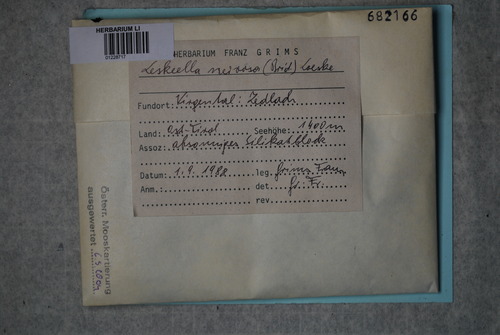 682166
HERBARIUM LI
HERBARIUM FRANZ GRIMS
Leskeella nervosa (Brid.) Loeske
Fundort: Virgental: Zedlach
Land: Ost-Tirol Seehöhe: 1400m
Assoz: absonniger Silikatblock
Datum: 1.9.1982 leg. Grims Franz
Anm.: det. Gr. Fr.
rev.
Österr. Mooskartierung
ausgewertet